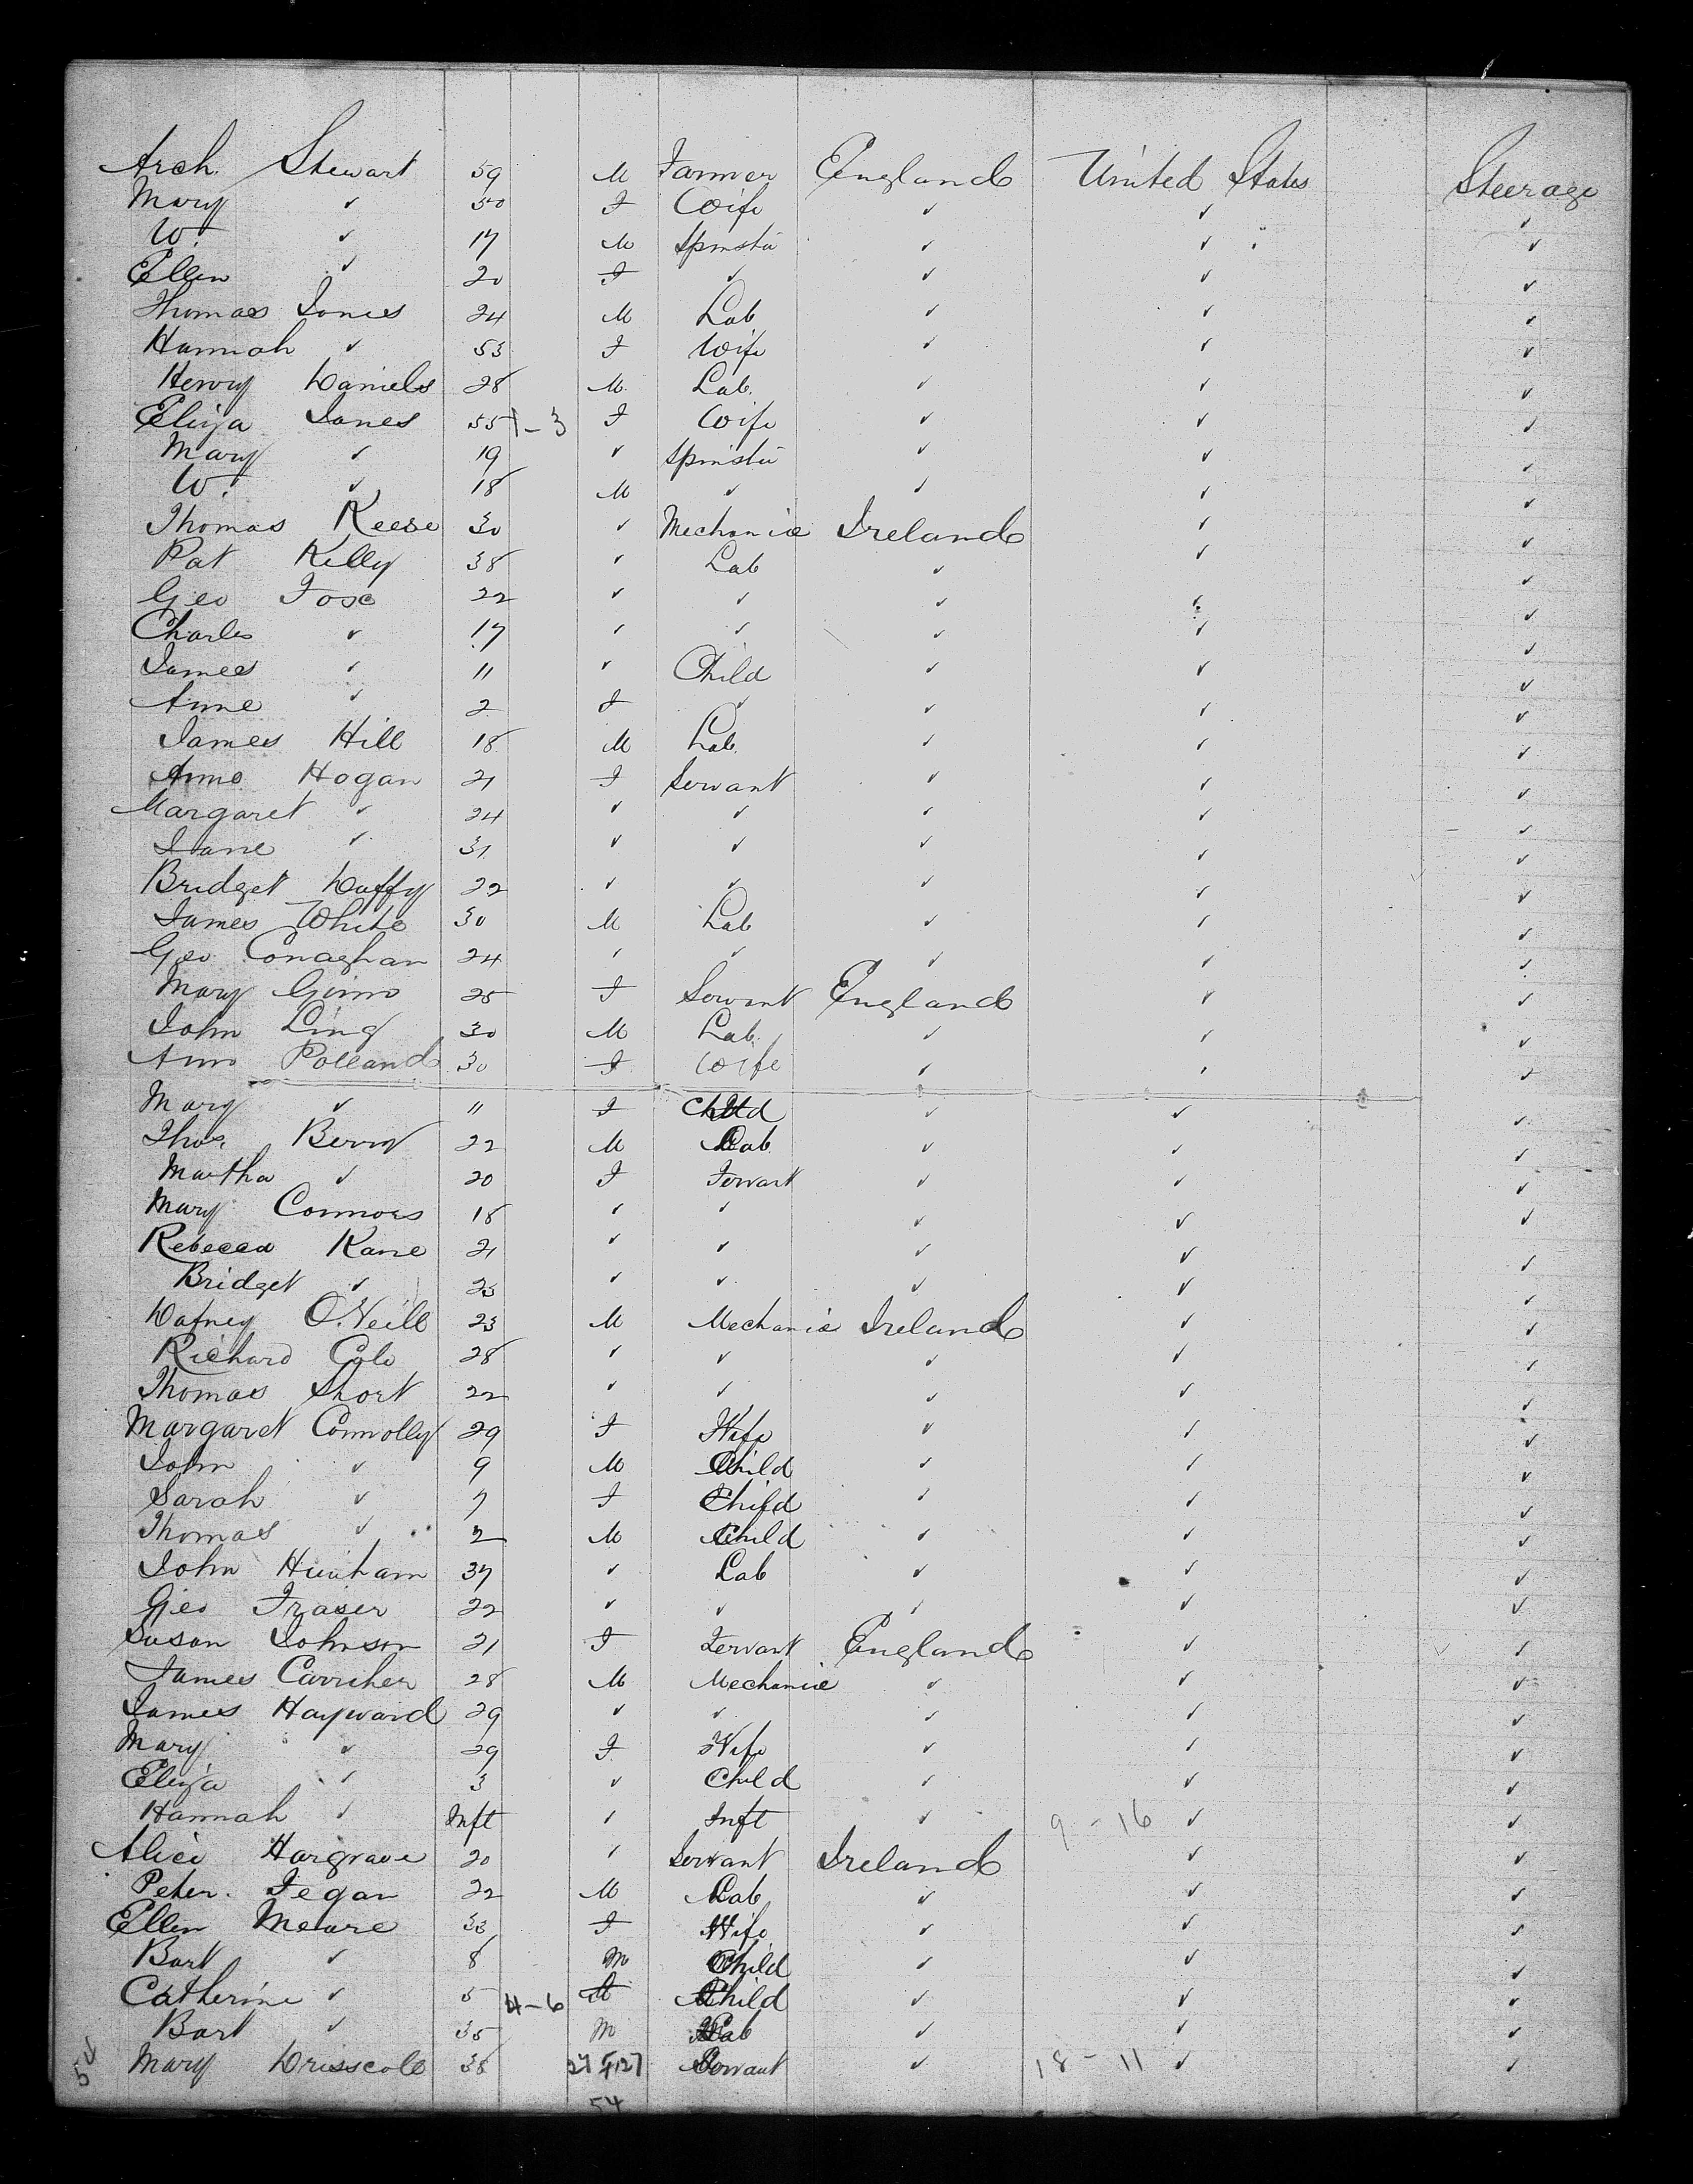 Arch. Stewart 59 M Farmer England United States Steerage
Mary ✓ 50 F Wife ✓ ✓ ✓
W. ✓ 17 M Spinster ✓ ✓ ✓
Ellen ✓ 20 F ✓ ✓ ✓ ✓
Thomas Jones 24 M Lab ✓ ✓ ✓
Hannah ✓ 53 F Wife ✓ ✓ ✓
Henry Daniels 28 M Lab. ✓ ✓ ✓
Eliza Jones 55 1-3 F Wife ✓ ✓ ✓
Mary ✓ 19 ✓ Spinster ✓ ✓ ✓
W. ✓ 18 M ✓ ✓ ✓ ✓
Thomas Reese 30 ✓ Mechanic Ireland ✓ ✓
Pat Kelly 38 ✓ Lab ✓ ✓ ✓
Geo Fox 22 ✓ ✓ ✓ ✓ ✓
Charles ✓ 17 ✓ ✓ ✓ ✓ ✓
James ✓ 11 ✓ Child ✓ ✓ ✓
Anne ✓ 2 F ✓ ✓ ✓ ✓
James Hill 18 M Lab. ✓ ✓ ✓
Anne Hogan 21 F Servant ✓ ✓ ✓
Margaret ✓ 24 ✓ ✓ ✓ ✓ ✓
Jane ✓ 31 ✓ ✓ ✓ ✓ ✓
Bridget Duffy 22 ✓ ✓ ✓ ✓ ✓
James White 30 M Lab ✓ ✓ ✓
Geo Conaghan 24 ✓ ✓ ✓ ✓ ✓
Mary 25 F Servant England ✓ ✓
John Ling 30 M Lab. ✓ ✓ ✓
Ann Polland 30 F Wife ✓ ✓ ✓
Mary ✓ 11 F Child ✓ ✓ ✓
Thos. Berry 22 M Lab ✓ ✓ ✓
Martha ✓ 20 F Servant ✓ ✓ ✓
Mary Connors 18 ✓ ✓ ✓ ✓ ✓
Rebecca Kane 21 ✓ ✓ ✓ ✓ ✓
Bridget ✓ 23 ✓ ✓ ✓ ✓ ✓
O.Neill 23 M Mechanic Ireland ✓ ✓
Richard Cole 28 ✓ ✓ ✓ ✓ ✓
Thomas Short 22 ✓ ✓ ✓ ✓ ✓
Margaret Connolly 29 F Wife ✓ ✓ ✓
John ✓ 9 M Child ✓ ✓ ✓
Sarah ✓ 7 F Child ✓ ✓ ✓
Thomas ✓ 2 M Child ✓ ✓ ✓
John 37 ✓ Lab ✓ ✓ ✓
Geo Fraser 22 ✓ ✓ ✓ ✓ ✓
Susan Johnson 21 F Servant England ✓ ✓
James Carricher 28 M Mechanic ✓ ✓ ✓
James Hayward 29 ✓ ✓ ✓ ✓ ✓
Mary ✓ 29 F Wife ✓ ✓ ✓
Eliza ✓ 3 ✓ Child ✓ ✓ ✓
Hannah ✓ Inft ✓ Inft ✓ 9-16 ✓ ✓
Alice Hargrave 20 ✓ Servant Ireland ✓ ✓
Peter. Fegan 22 M Lab ✓ ✓ ✓
Ellen Meare 33 F Wife ✓ ✓ ✓
Bart ✓ 8 M Child ✓ ✓ ✓
Catherine ✓ 5 4-6 F Child ✓ ✓ ✓
Bart ✓ 35 M Lab ✓ ✓ ✓
54 Mary Drisscoll 38 27 F 27 Servant ✓ 18-11 ✓ ✓
54